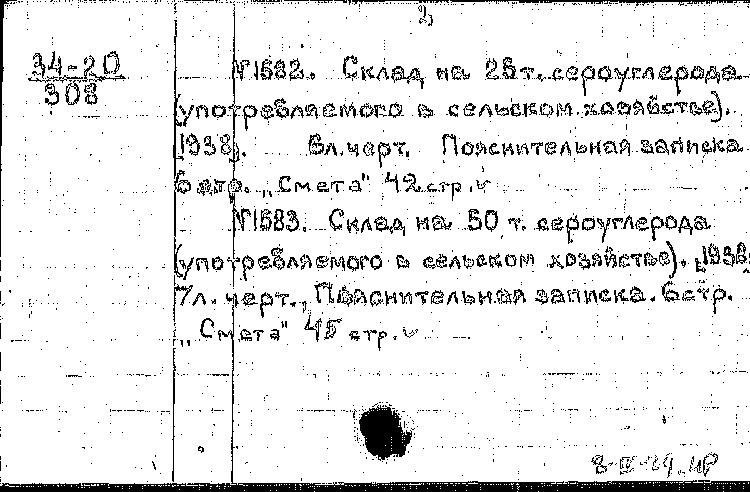 2
34-20
308
№1582. Склад на 25 т. сероуглерода
(употребляемого в сельском хозяйстве).
[1938]. 6 л. черт. Пояснительная записка
6 стр. „Смета" 42 стр.
№1583. Склад на 50 т. сероуглерода
(употребляемого в сельском хозяйстве). [1938]
7 л. черт., Пояснительная записка. 6 стр.
„Смета" 45 стр.